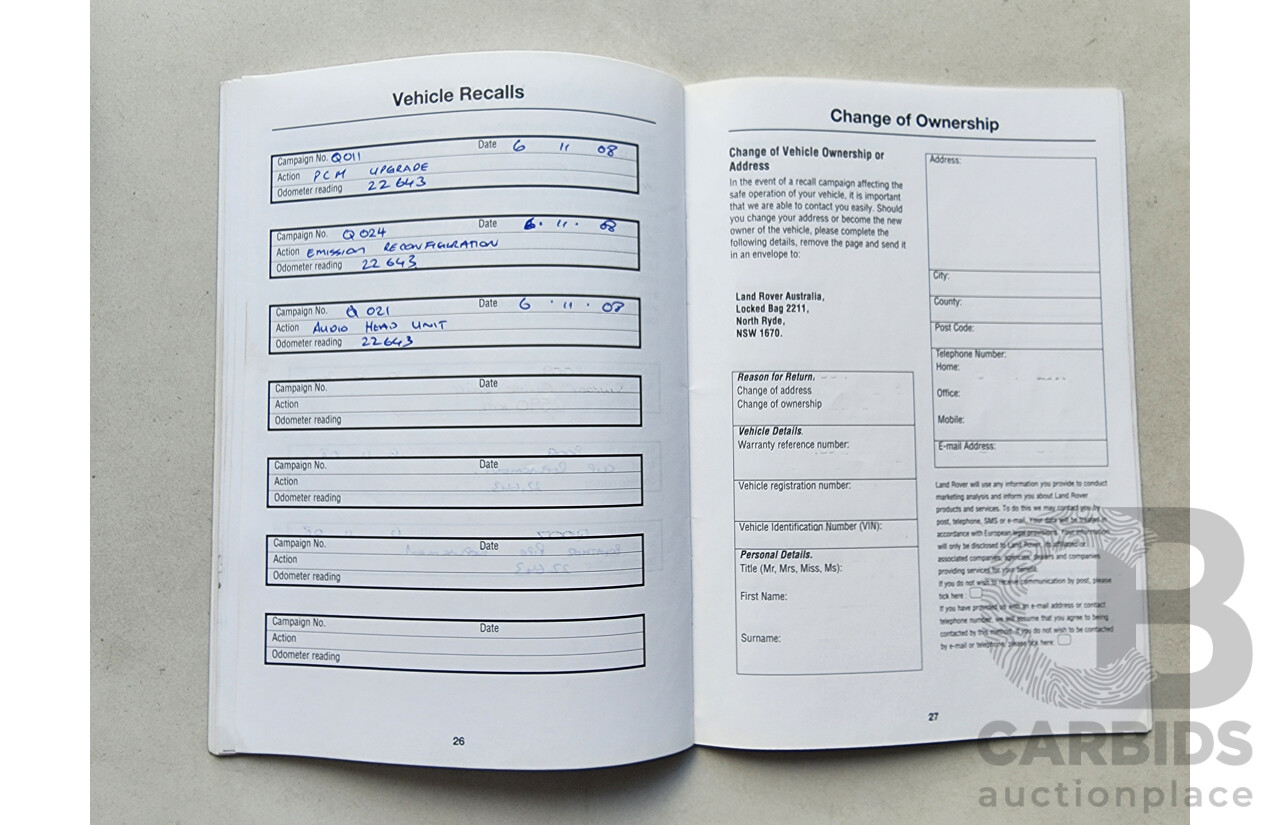 Vehicle Recalls
Campaign No. Q011 Date 6 11 08
Action PCM UPGRADE
Odometer reading 22643
Campaign No. Q024 Date 6 . 11 . 08
Action EMISSION RECONFIGURATION
Odometer reading 22643
Campaign No. Q021 Date 6 . 11 . 08
Action AUDIO HEAD UNIT
Odometer reading 22643
Campaign No. Date
Action
Odometer reading
Campaign No. Date
Action
Odometer reading
Campaign No. Date
Action
Odometer reading
Campaign No. Date
Action
Odometer reading
26
Change of Ownership
Change of Vehicle Ownership or
Address
In the event of a recall campaign affecting the
safe operation of your vehicle, it is important
that we are able to contact you easily. Should
you change your address or become the new
owner of the vehicle, please complete the
following details, remove the page and send it
in an envelope to:
Land Rover Australia,
Locked Bag 2211,
North Ryde,
NSW 1670.
Reason for Return.
Change of address
Change of ownership
Vehicle Details.
Warranty reference number:
Vehicle registration number:
Vehicle Identification Number (VIN):
Personal Details.
Title (Mr, Mrs, Miss, Ms):
First Name:
Surname:
Address:
City:
County:
Post Code:
Telephone Number:
Home:
Office:
Mobile:
E-mail Address:
Land Rover will use any information you provide to conduct
marketing analysis and inform you about Land Rover
products and services. To do this we may contact you by
post, telephone, SMS or e-mail. Your data will be treated in
accordance with European legal provisions. Your information
will only be disclosed to Land Rover, its affiliated or
associated companies, agencies, dealers and companies
providing services for your benefit.
If you do not wish to receive communication by post, please
tick here:
If you have provided us with an e-mail address or contact
telephone number, we will assume that you agree to being
contacted by this method. If you do not wish to be contacted
by e-mail or telephone, please tick here:
27
CB
CARBIDS
auctionplace